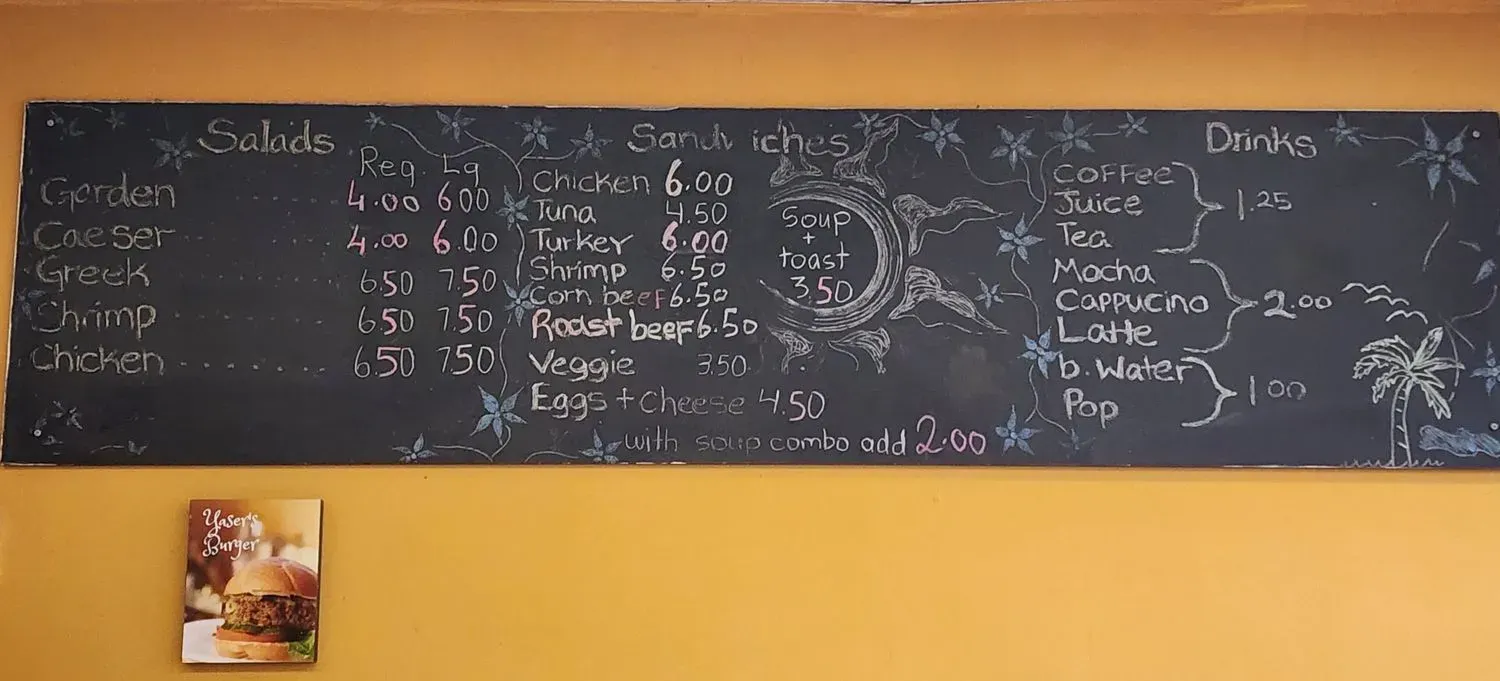 Salads
Reg. Lg
Garden ........ 4.00 6 00
Caeser ........ 4.00 6.00
Greek 6.50 7.50
Shrimp ........ 6.50 7.50
Chicken ........ 6.50 7.50
Sandwiches
Chicken 6.00
Tuna 4.50
Turkey 6.00
Shrimp 6.50
Corn beef 6.50
Roast beef 6.50
Veggie 3.50
Eggs + cheese 4.50
with soup combo add 2.00
Soup
+
toast
3.50
Drinks
Coffee
Juice
Tea
1.25
Mocha
Cappucino
Latte
2.00
b. Water
Pop
1 00
Yaser's
Burger